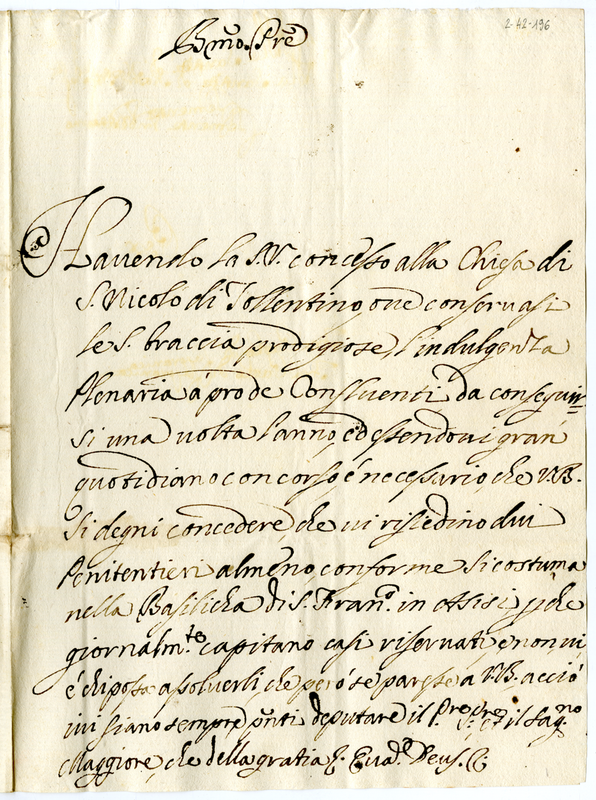 2-42-196
B.mo Pre
Havendo la S.V. concesso alla Chiesa di
S. Nicolo di Tollentino, ove conservasi
le S. braccia prodigiose, l'indulgenza
Plenaria à pro de Confluenti da consequir=
si una volta l'anno, ed essendovi gran
quotidiano concorso, é necessario, che V.B.
si degni concedere, che vi risiedino dui
Penitentieri almeno, conforme si costuma
nella Basilicha di S. Fran.o in Asisi, p che
giornalm.te capitano casi riservati, e non vi
é chi possa asolverli, che peró se paresse a V.B. acció
ivi siano sempre p̃nti deputare il P. et il Sag.no
Maggiore, che della gratia &. Deus. &.